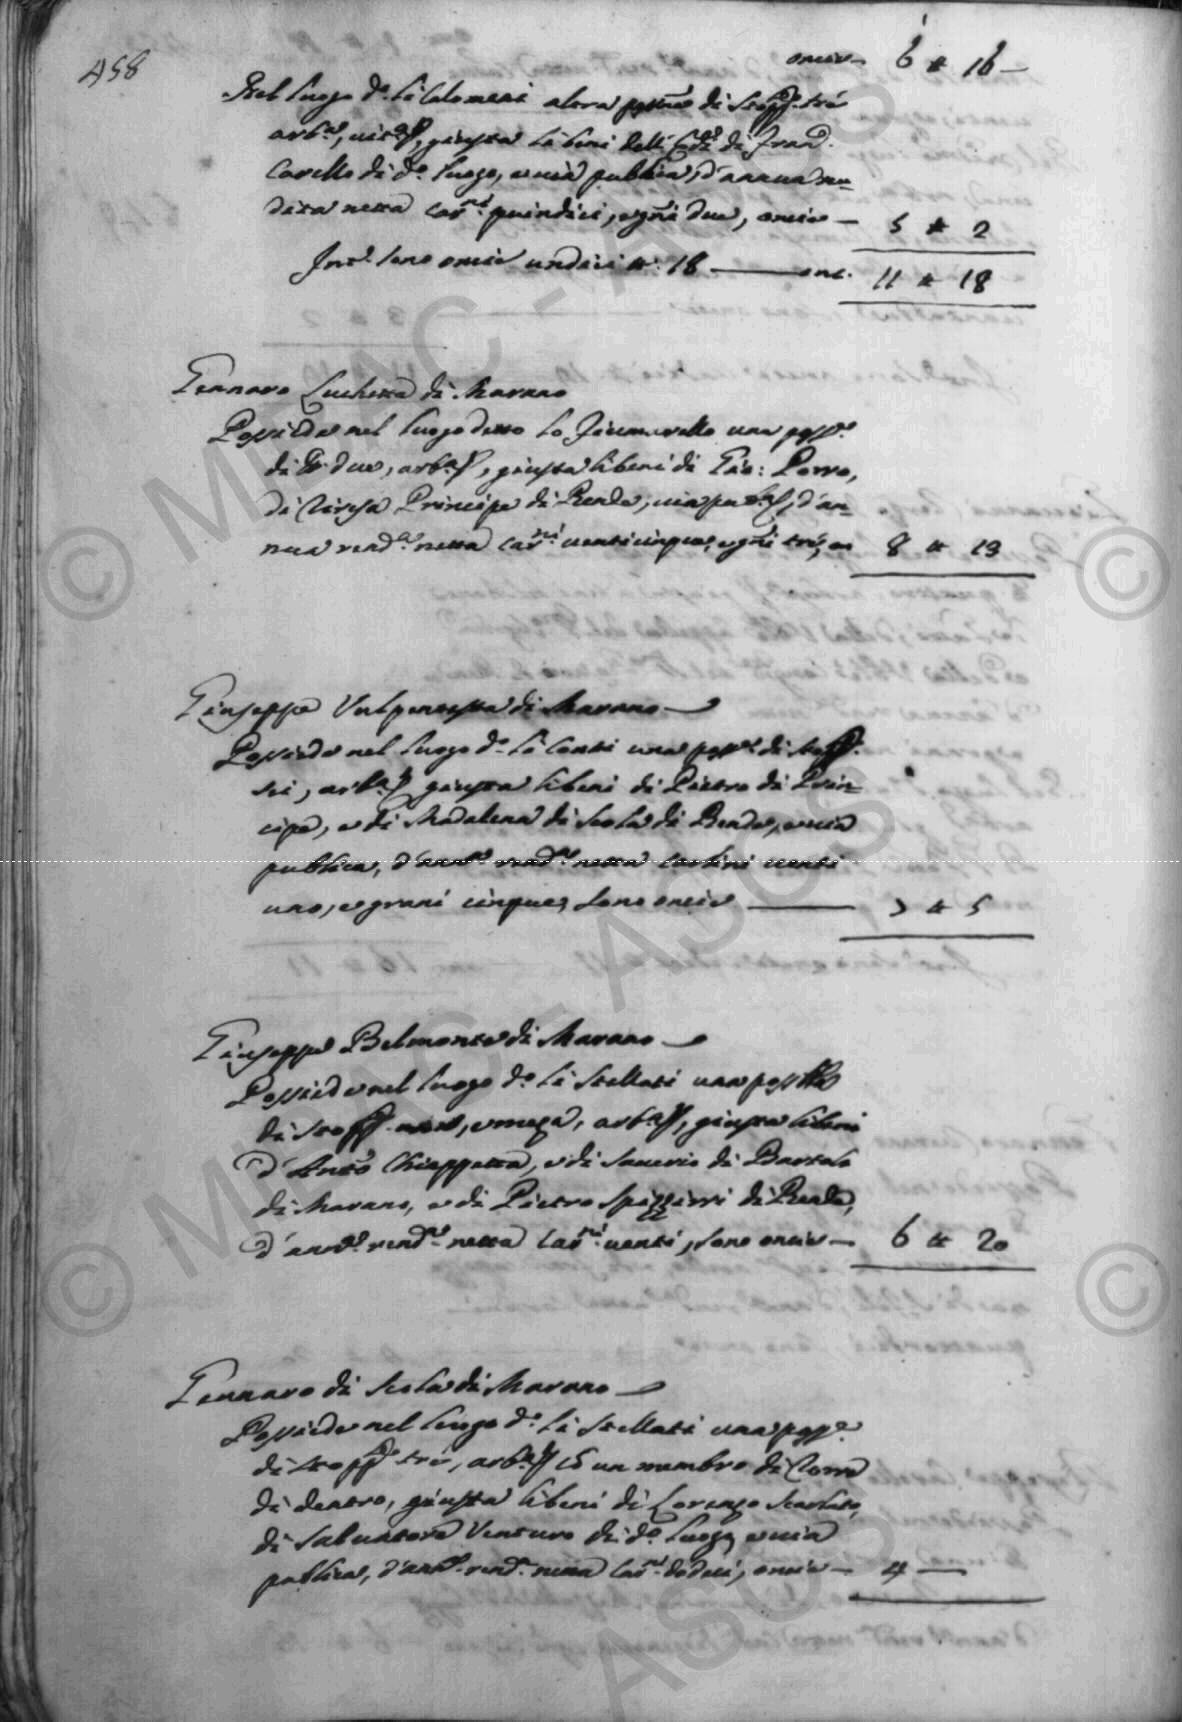 458
oncie 6 # 16
Nel luogo d.º li Calomeni altra poss.ne di stopp.e tré
arb.a, vit.a, giusta li beni delli di Fran.
Covello di d.º luogo, e via publica, d'annua ren=
dita netta Car.ni quindici, e g.ni due, oncie 5 # 2
Int.º sono oncie undici #. 18 onc. 11 # 18
Gennaro Luchetta di Marano
Possiede nel luogo detto lo Fiumarello una poss.e
di due, arb.a, giusta li beni di Gio: Porro,
di Principe di Rende, via, d'an=
nua rend.a netta Car.ni venticinque, e g.ni tré, on 8 # 13
Giuseppe Vulpentesta di Marano
Possiede nel luogo d.º li Conti una poss.e di stopp.
sei, arb.a giusta li beni di Pietro di Prin=
cipe, e di Madalena di Scola di Rende, e via
publica, d'ann.a rend.a netta Carlini venti
uno, e grani cinque, sono oncie 7 # 5
Giuseppe Belmonte di Marano
Possiede nel luogo d.º li Stellati una poss.e
di stopp. e meza, arb.a, giusta li beni
d'Ant.º Chiappetta, e di Saverio di Bartolo
di Marano, e di Pietro Spizzirri di Rende,
d'ann.a rend.a netta Car.ni venti, sono oncie 6 # 20
Gennaro di Scola di Marano
Possiede nel luogo d.º li Stellati una poss.e
di stopp.e tré, arb.a con un membro di Torre
di dentro, giusta li beni di Lorenzo Scarlato,
di Salvatore Venturo di d.º luogo, e via
publica, d'ann.a rend.a netta Car.ni dodeci, oncie 4
© MBAC - ASCS ©
© MBAC - ASCS ©
ASCS